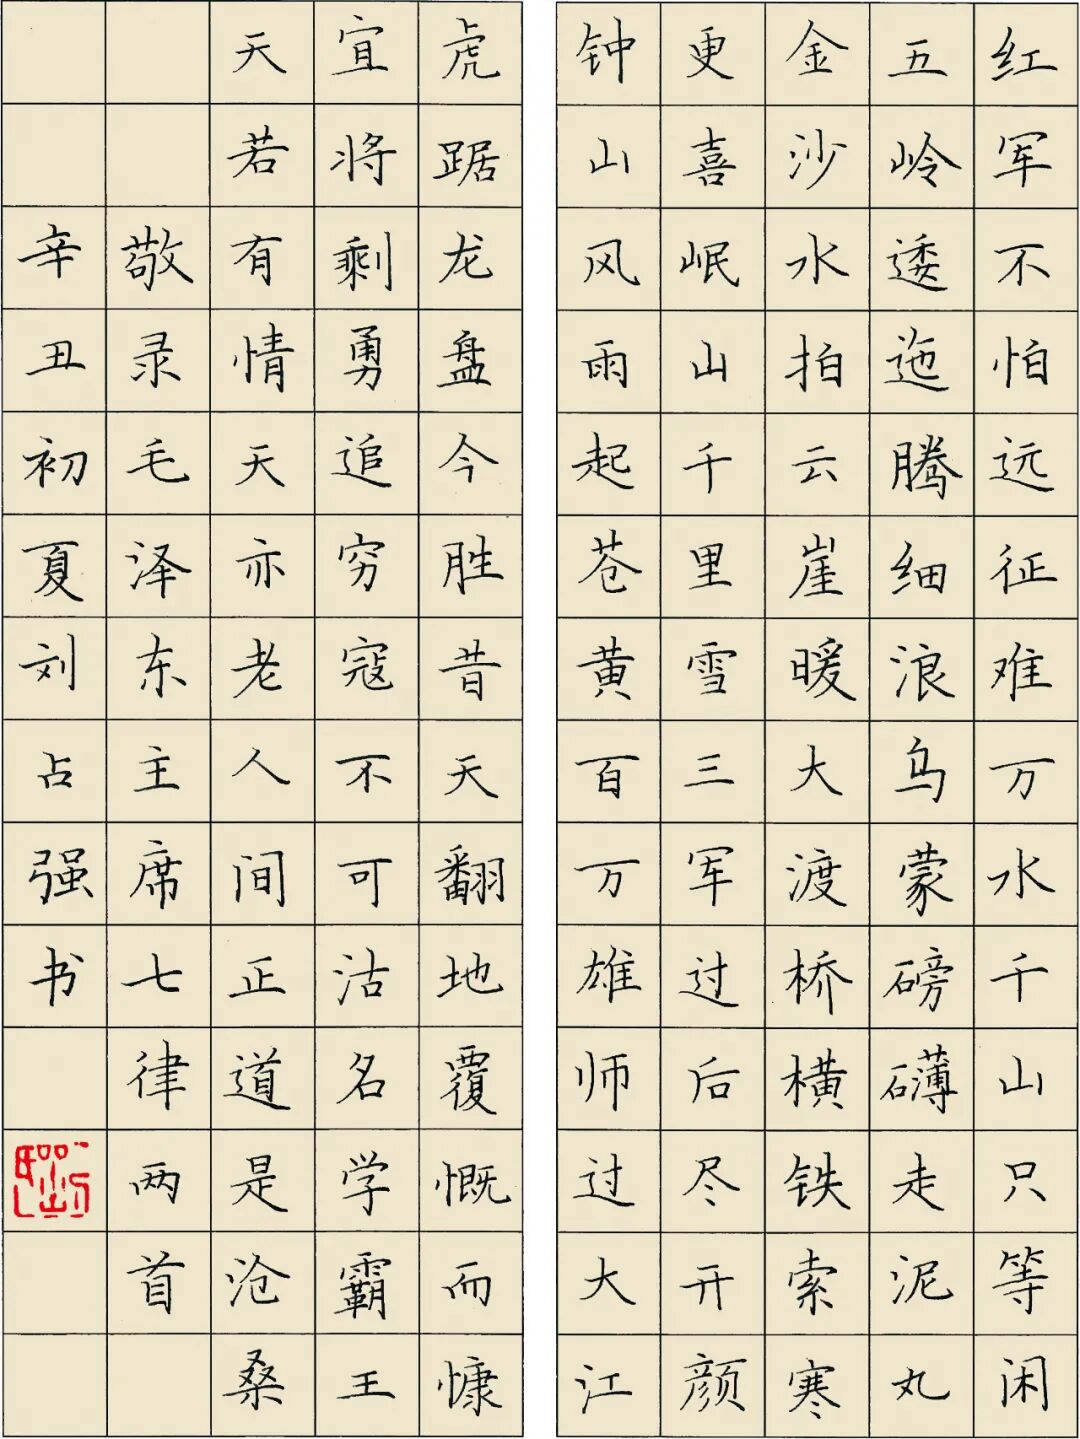 红军不怕远征难万水千山只等闲
五岭逶迤腾细浪乌蒙磅礴走泥丸
金沙水拍云崖暖大渡桥横铁索寒
更喜岷山千里雪三军过后尽开颜
钟山风雨起苍黄百万雄师过大江
虎踞龙盘今胜昔天翻地覆慨而慷
宜将剩勇追穷寇不可沽名学霸王
天若有情天亦老人间正道是沧桑
敬录毛泽东主席七律两首
辛丑初夏刘占强书